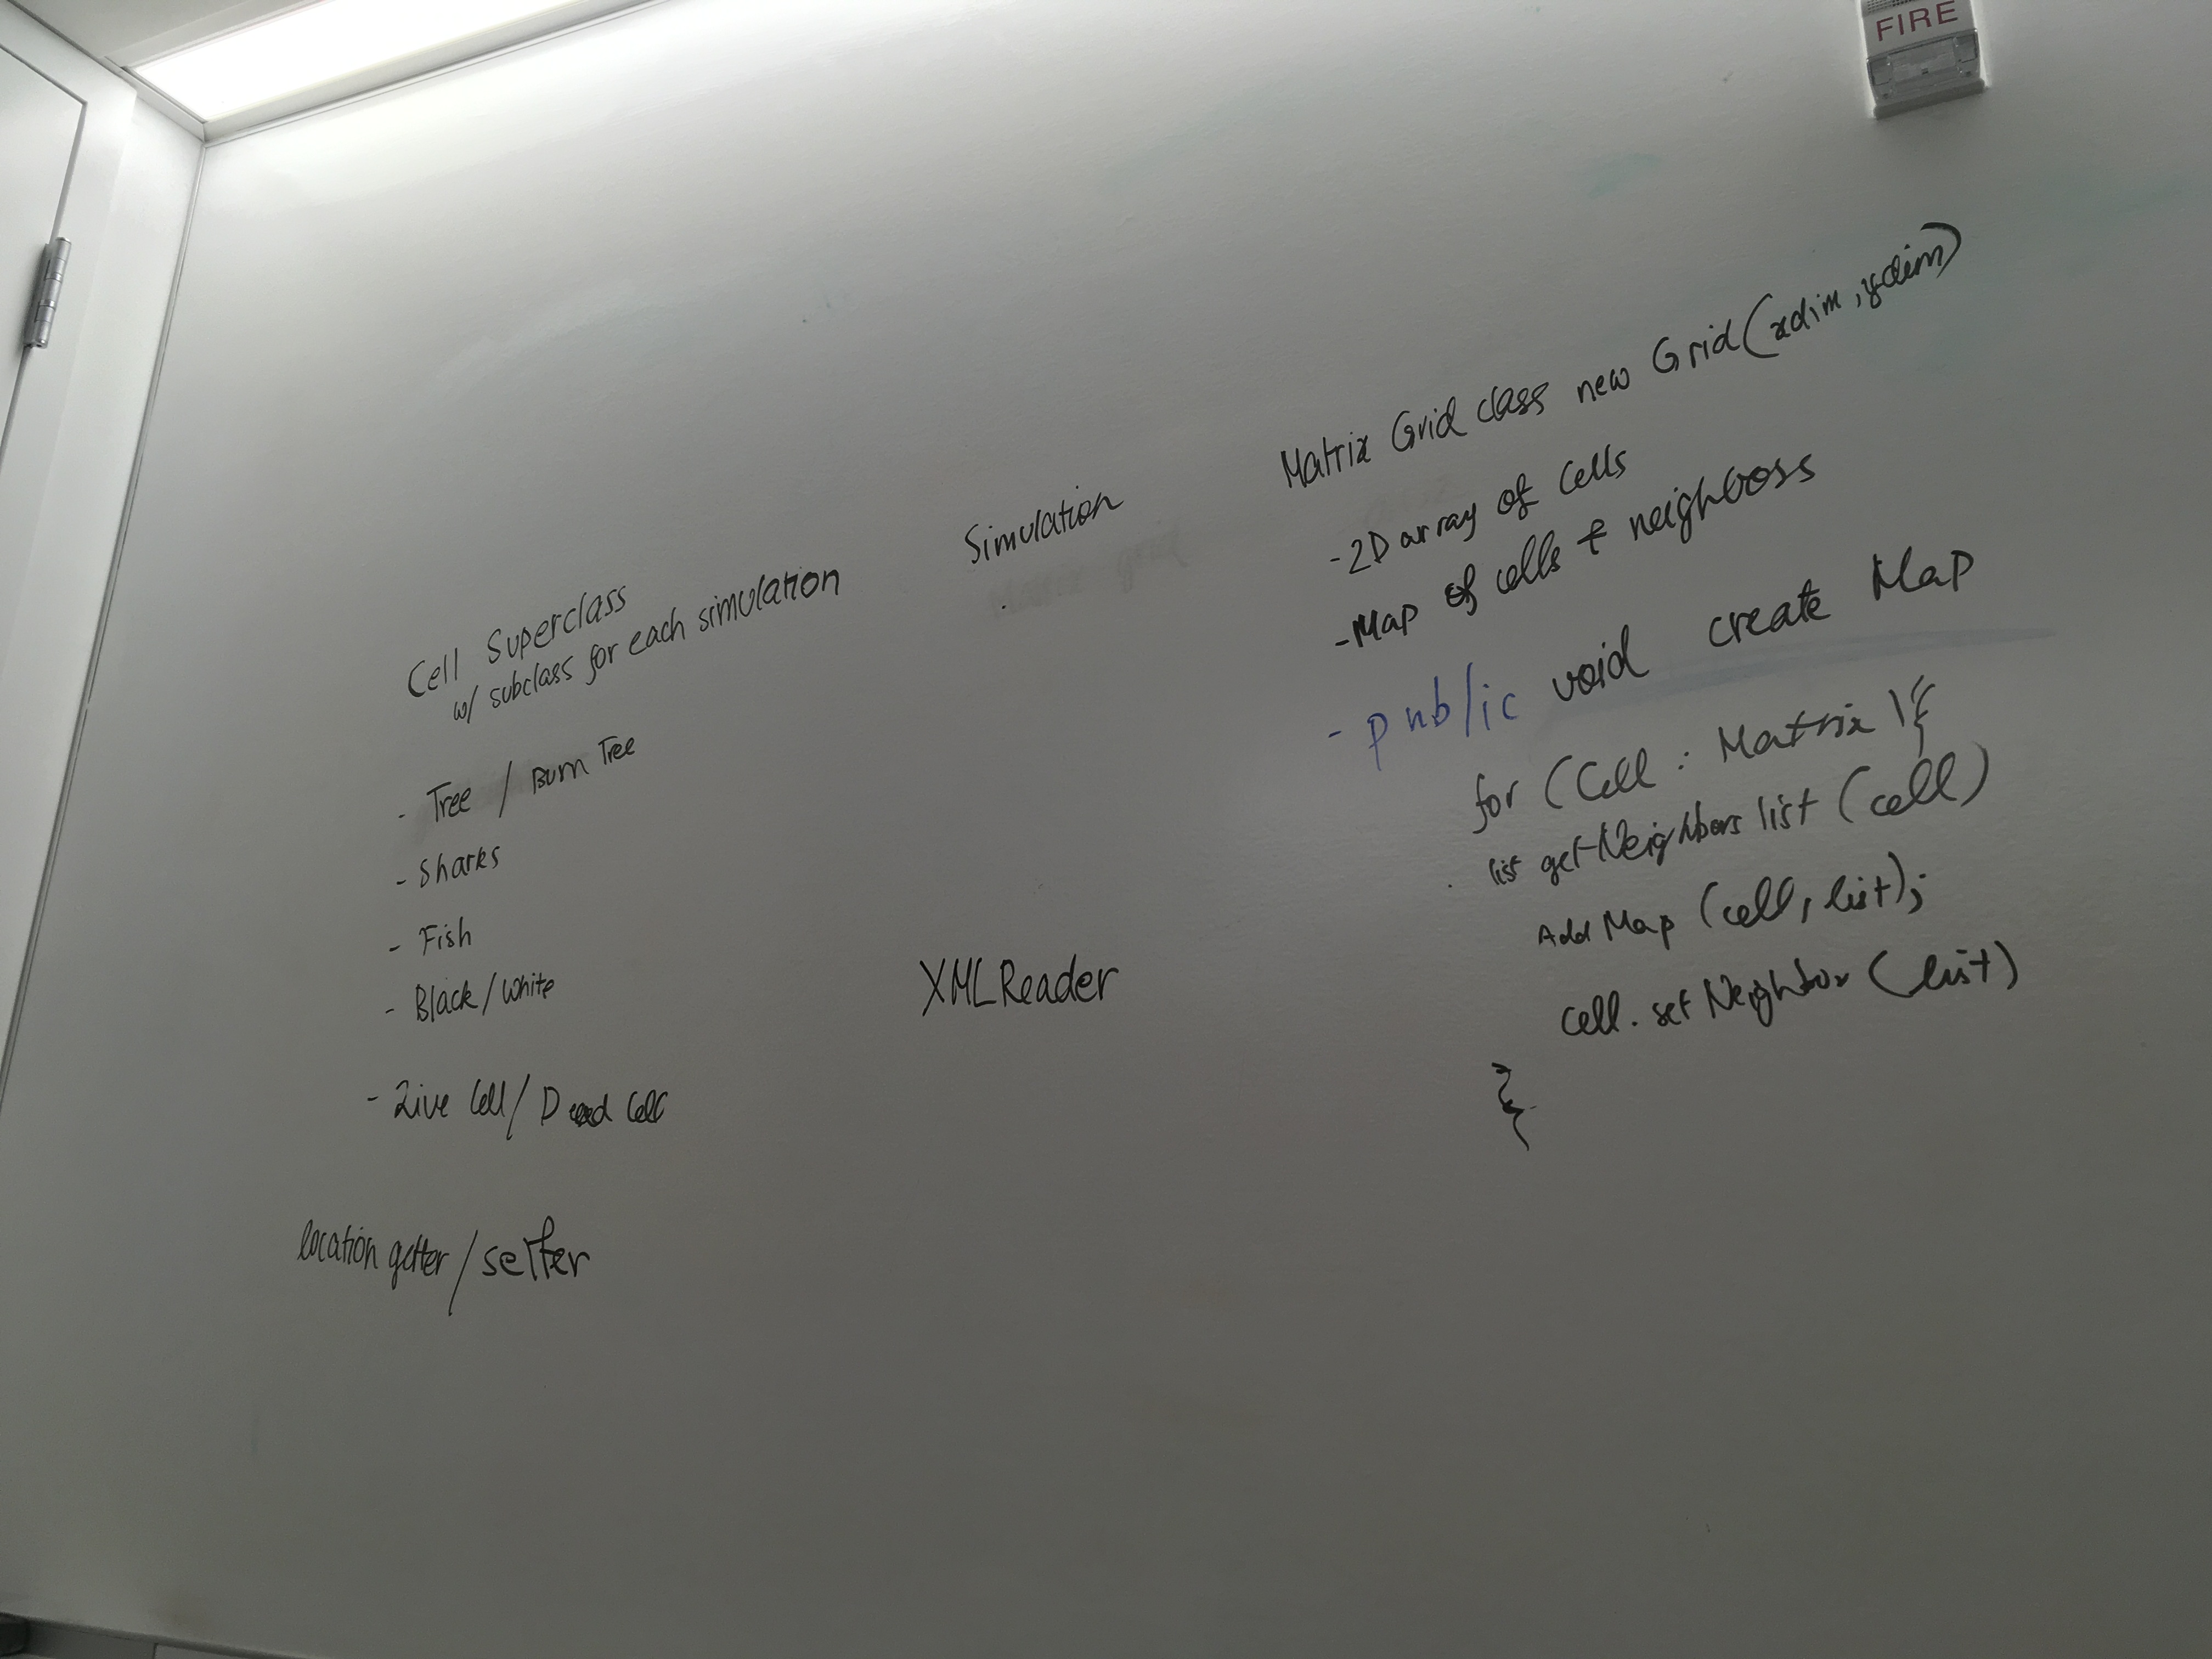 FIRE
Cell Superclass
w/ subclass for each simulation
- Tree / Burn Tree
- Sharks
- Fish
- Black/White
- Live Cell/ Dead Cell
location getter/setter
Simulation
XMLReader
Matrix Grid class new Grid(xdim, ydim)
- 2D array of Cells
- Map of cells + neighbors
- public void create Map
for (Cell : Matrix ){
list get Neighbors list (cell)
Add Map (cell, list);
cell. set Neighbor (list)
}